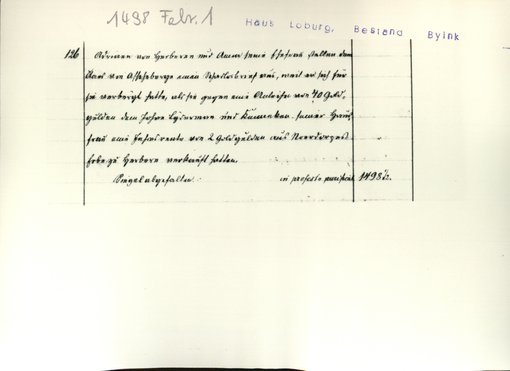 1498 Febr. 1
Haus Loburg, Bestand Byink
126
Adrian von Herberen und Anna seine Ehefrau stellen dem
von Ascheberge einen Schadlosbrief aus, weil er sich für
sie verbürgt hatte, als sie gegen eine Anleihe von 40 Gold-
gülden dem Johan und Kunneken seiner Haus-
frau eine Jahresrente von 2 Goldgülden aus
Erbe zu Herbern verkauft hatten.
Siegel abgefallen. in profesto purificat. 1498